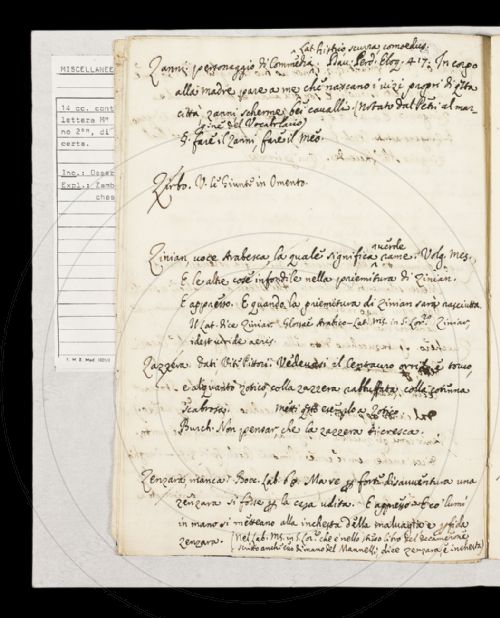 MISCELLANEE
14 cc. cont
lettera Mª
no 2ª, di
certa.
Inc.: Osser
Expl.: Zamb
ches
I. M. S. Mod.
Lat. histrio, scurra comoedus.
Zanni, personaggio di Commedia. Dav: Perd. Eloq. 417. In corpo
alla madre pare a me che nascano i vizi propri di
città, zanni, scherme, bei cavalli. (Notato dal al mar-
gine del Vocabolario)
§. fare il Zanni, fare il
Zirbo. V. le Giunte in Omento.
Zinian, voce Arabesca, la quale significa rame. Volg. Mes.
verde
E le altre cose infondile nella premitura di Zinian.
E appresso. E quando la premitura di Zinian sarà rasciutta
Il Lat. dice Ziniar. Glossae Arabico-Lat. Ms. in S. Ziniar,
idest viride aeris.
Zazzera. Dati Vit. Pittori: Vedevasi il Centauro orribile e torvo,
e alquanto zotico, colla zazzera rabbuffata, colla cotenna
scabrosa. metti esempio a Zotico
Burch. Non pensar, che la zazzera ti cresca.
Zenzara manca. Bocc. Lab. Ma se forte disavventura una
zenzara si fosse per la casa udita. E appresso. E co' lumi
in mano si metteano alla inchesta della malvagia e perfida
zenzara. (Nel Lab. Ms. in S. che è nello stesso libro del Decamerone
scritto anch'esso di mano del Mannelli, dice zenzara e inchesta)